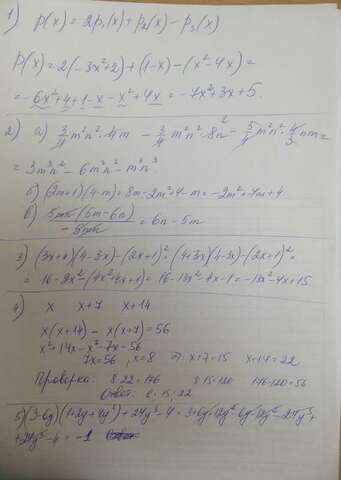 1) p(x) = 2p₁(x) + p₂(x) - p₃(x)
p(x) = 2(-3x²+2) + (1-x) - (x²-4x) =
= -6x²+4+1-x-x²+4x = -7x²+3x+5.
2) а) 3/4 m²n²·4m - 3/4 m²n²·8n² - 3/4 m²n²·4/3 nm =
= 3m³n² - 6m²n² - m³n³
б) (2m+1)(4-m) = 8m-2m²+4-m = -2m²+7m+4
в) (5m-6n) = 6n-5m
3) (3x+4)(4-3x)-(2x+1)² = (4+3x)(4-3x)-(2x+1)² =
= 16-9x²-(4x²+4x+1) = 16-13x²-4x-1 = -13x²-4x+15.
4) x x+7 x+14
x(x+14) - x(x+7) = 56
x²+14x-x²-7x=56
7x=56, x=8 ⇒ x+7=15 x+14=22
Проверка: 8·22=176 8·15=120 176-120=56
Ответ: 8; 15; 22
5) (3-6y)(1+2y+4y²)+24y³-4 = 3+6y+12y²-6y-12y²-24y³+
+24y³-4 = -1